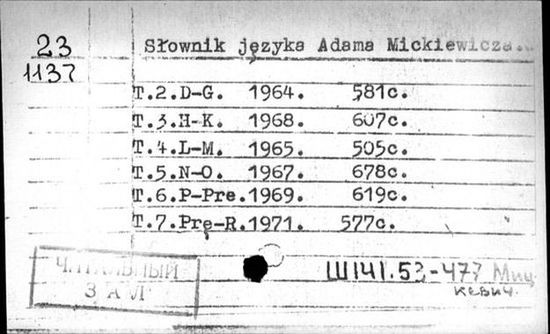 23
1137
Słownik języka Adama Mickiewicza.
T.2.D-G. 1964. 581с.
T.3.H-K. 1968. 607с.
T.4.L-M. 1965. 505с.
T.5.N-O. 1967. 678с.
T.6.P-Pre.1969. 619с.
T.7.Prę-R.1971. 577с.
ЧИТАЛЬНЫЙ
ЗАЛ
Ш141.53-477 Миц
кевич